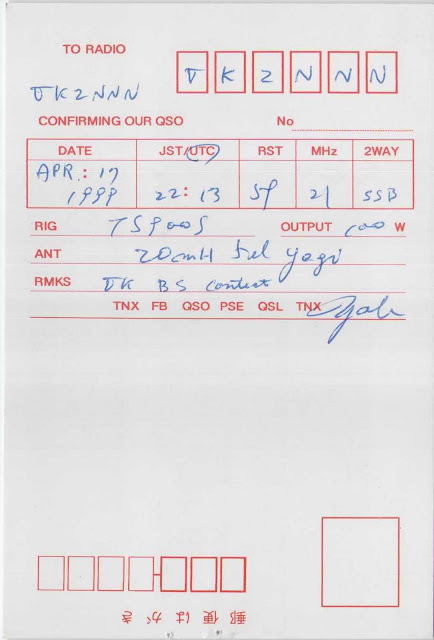 TO RADIO
JK2NNN
JK2NNN
CONFIRMING OUR QSO No
DATE JST/UTC RST MHz 2WAY
APR. : 17
1999 22: 13 59 21 SSB
RIG TS900S OUTPUT 100 W
ANT 20mH 5el yagi
RMKS JK BS contest
TNX FB QSO PSE QSL TNX
郵便はがき